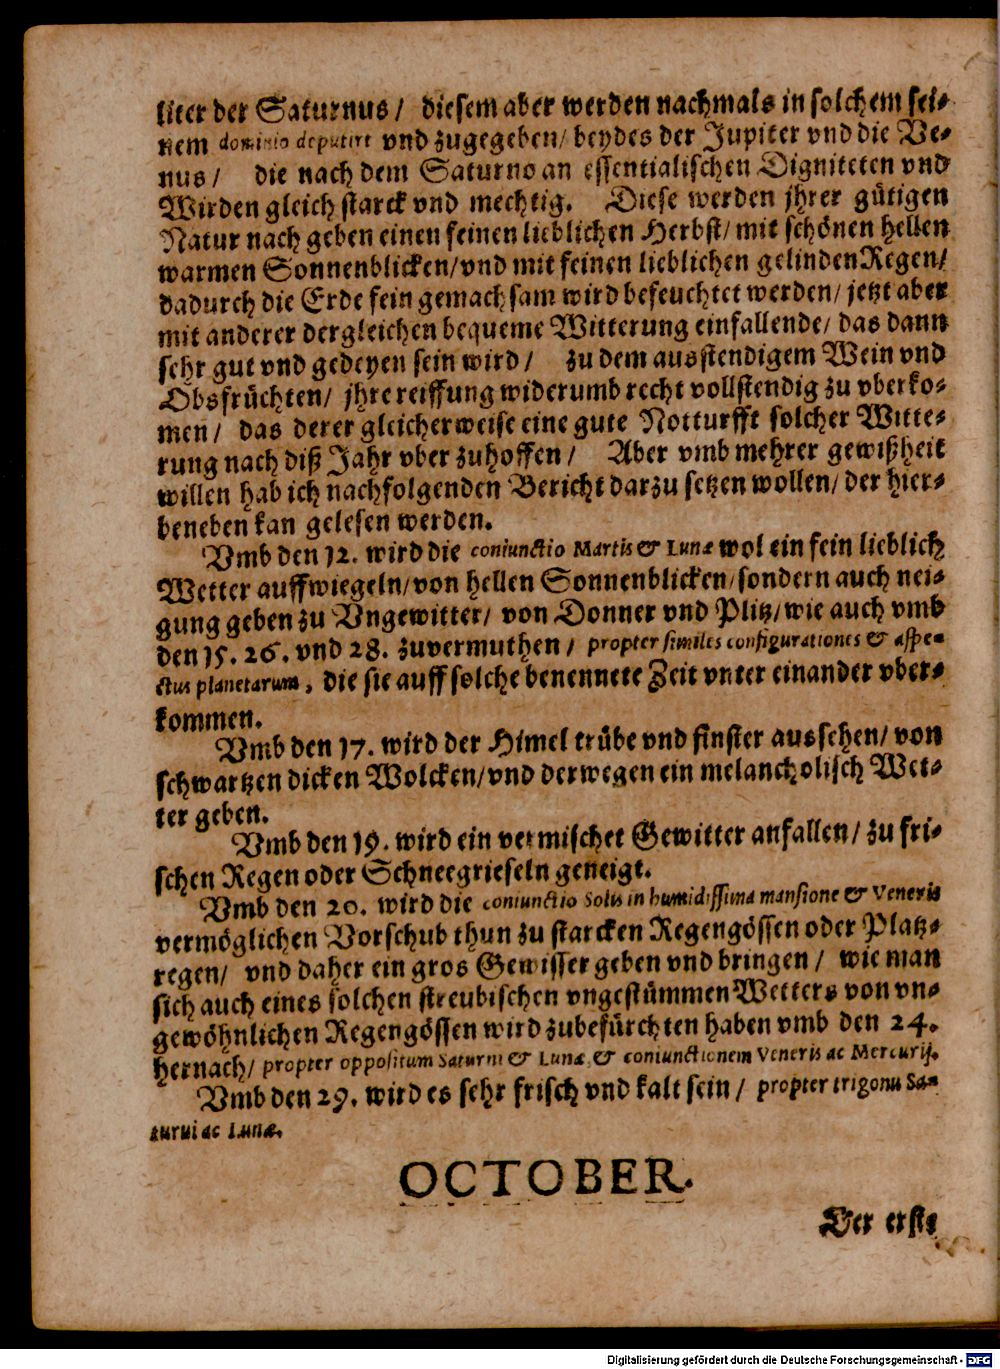 liter der Saturnus / diesem aber werden nachmals in solchem sei-
nem dominio deputirt vnd zugegeben / beydes der Jupiter vnd die Ve-
nus / die nach dem Saturno an essentialischen Digniteten vnd
Wirden gleich starck vnd mechtig. Diese werden jhrer gütigen
Natur nach geben einen feinen lieblichen Herbst / mit schönen hellen
warmen Sonnenblicken / vnd mit feinen lieblichen gelinden Regen /
dadurch die Erde fein gemachsam wird befeuchtet werden / jetzt aber
mit anderer dergleichen bequeme Witterung einfallende / das dann
sehr gut vnd gedeyen sein wird / zu dem ausstendigem Wein vnd
Obsfrüchten / jhre reiffung widerumb recht vollstendig zu vberko-
men / das derer gleicherweise eine gute Notturfft solcher Witte-
rung nach diß Jahr vber zuhoffen / Aber vmb mehrer gewißheit
willen hab ich nachfolgenden Bericht darzu setzen wollen / der hier-
beneben kan gelesen werden.
Vmb den 12. wird die coniunctio Martis & Lunæ wol ein fein lieblich
Wetter auffwiegeln / von hellen Sonnenblicken / sondern auch nei-
gung geben zu Vngewitter / von Donner vnd Plitz / wie auch vmb
den 15. 26. vnd 28. zuvermuthen / propter similes configurationes & aspe-
ctus planetarum, die sie auff solche benennete Zeit vnter einander vber-
kommen.
Vmb den 17. wird der Himel trübe vnd finster aussehen / von
schwartzen dicken Wolcken / vnd derwegen ein melancholisch Wet-
ter geben.
Vmb den 19. wird ein vermischet Gewitter anfallen / zu fri-
schen Regen oder Schneegrieseln geneigt.
Vmb den 20. wird die coniunctio Solis in humidissima mansione & Veneris
vermöglichen Vorschub thun zu starcken Regengössen oder Platz-
regen / vnd daher ein gros Gewisser geben vnd bringen / wie man
sich auch eines solchen streubischen vngestümmen Wetters von vn-
gewöhnlichen Regengössen wird zubefürchten haben vmb den 24.
hernach / propter oppositum Saturni & Lunæ, & coniunctionem Veneris ac Mercurij.
Vmb den 29. wird es sehr frisch vnd kalt sein / propter trigonū Sa-
turni ac Lunæ.
OCTOBER.
Der erste
Digitalisierung gefördert durch die Deutsche Forschungsgemeinschaft - DFG